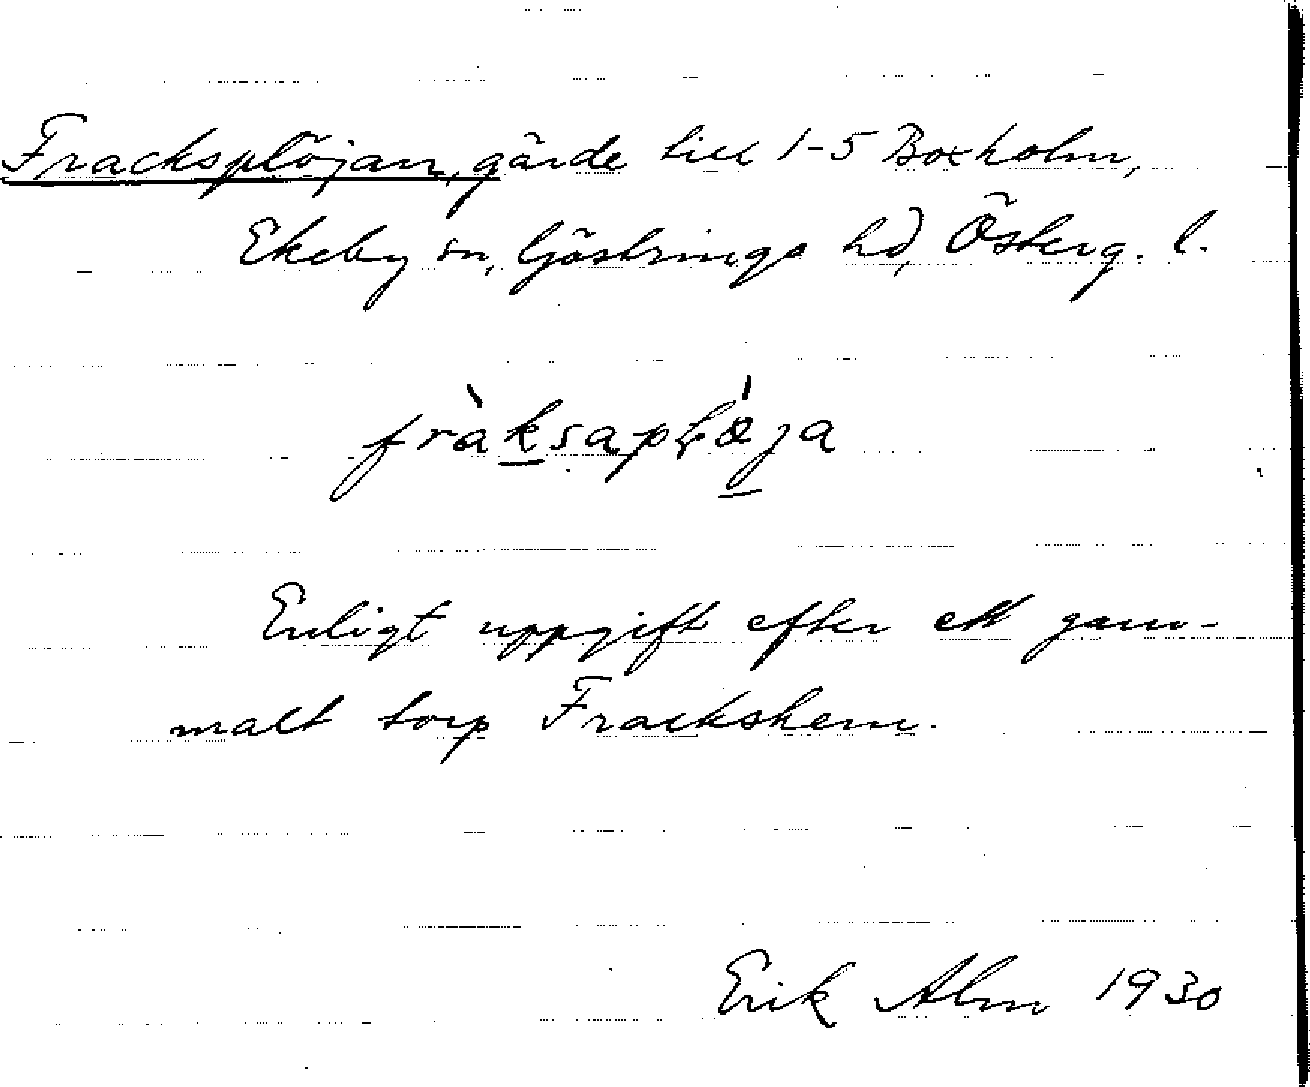 Fracksplöjan, gärde till 1-5 Boxholm,
Ekeby sn, Göstrings hd, Österg. l.
fràksapḷö́ja
Enligt uppgift efter ett gam-
malt torp Frackshem.
Erik Alm 1930